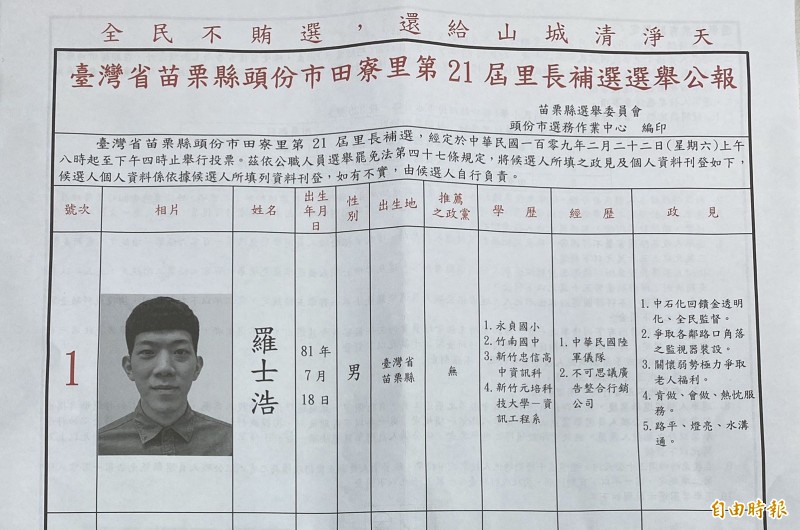 全民不賄選，還給山城清淨天
臺灣省苗栗縣頭份市田寮里第21屆里長補選選舉公報
苗栗縣選舉委員會
頭份市選務作業中心 編印
臺灣省苗栗縣頭份市田寮里第 21 屆里長補選，經定於中華民國一百零九年二月二十二日(星期六)上午
八時起至下午四時止舉行投票。茲依公職人員選舉罷免法第四十七條規定，將候選人所填之政見及個人資料刊登如下，
候選人個人資料係依據候選人所填列資料刊登，如有不實，由候選人自行負責。
號次
相片
姓名
出生
年月
日
性
別
出生地
推薦
之政黨
學歷
經歷
政見
1
羅士浩
81 年
7 月
18 日
男
臺灣省
苗栗縣
無
1. 永貞國小
2. 竹南國中
3. 新竹忠信高
中資訊科
4. 新竹元培科
技大學－資
訊工程系
1. 中華民國陸
軍儀隊
2. 不可思議廣
告整合行銷
公司
1. 中石化回饋金透明
化、全民監督。
2. 爭取各鄰路口角落
之監視器裝設。
3. 關懷弱勢極力爭取
老人福利。
4. 肯做、會做、熱忱服
務。
5. 路平、燈亮、水溝
通。
自由時報